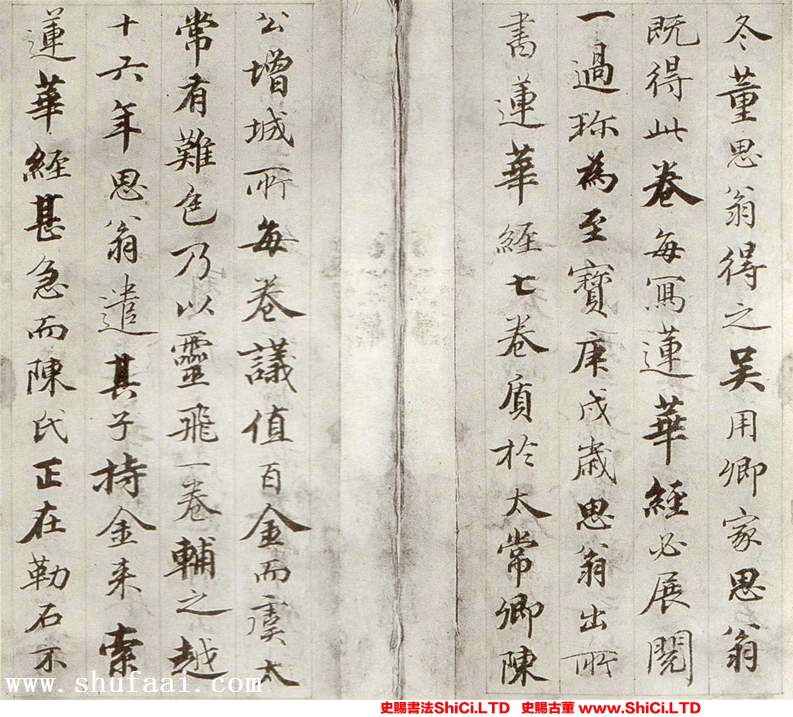 冬董思翁得之吴用卿家思翁
既得此卷每寫蓮華經必展閱
一過珎為至寶庚戌歲思翁出所
書蓮華經七卷質於太常卿陳
公增城所每卷議值百金而虞太
常有難色乃以靈飛一卷輔之越
十六年思翁遣其子持金来索
蓮華經甚急而陳氏正在勒石不
www.shufaai.com
史賜書法ShiCi.LTD 史賜古董 www.ShiCi.LTD